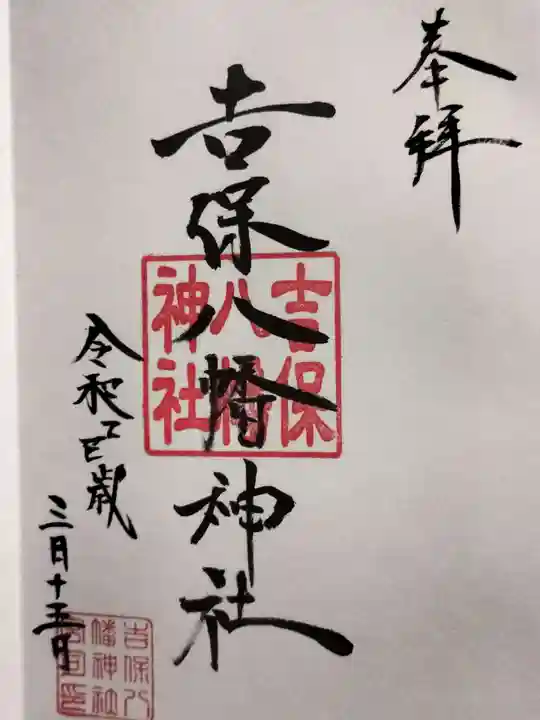 奉拝
吉保八幡神社
吉保
八幡
神社
令和乙巳歳
三月十五日
吉保八
幡神社
宮司印